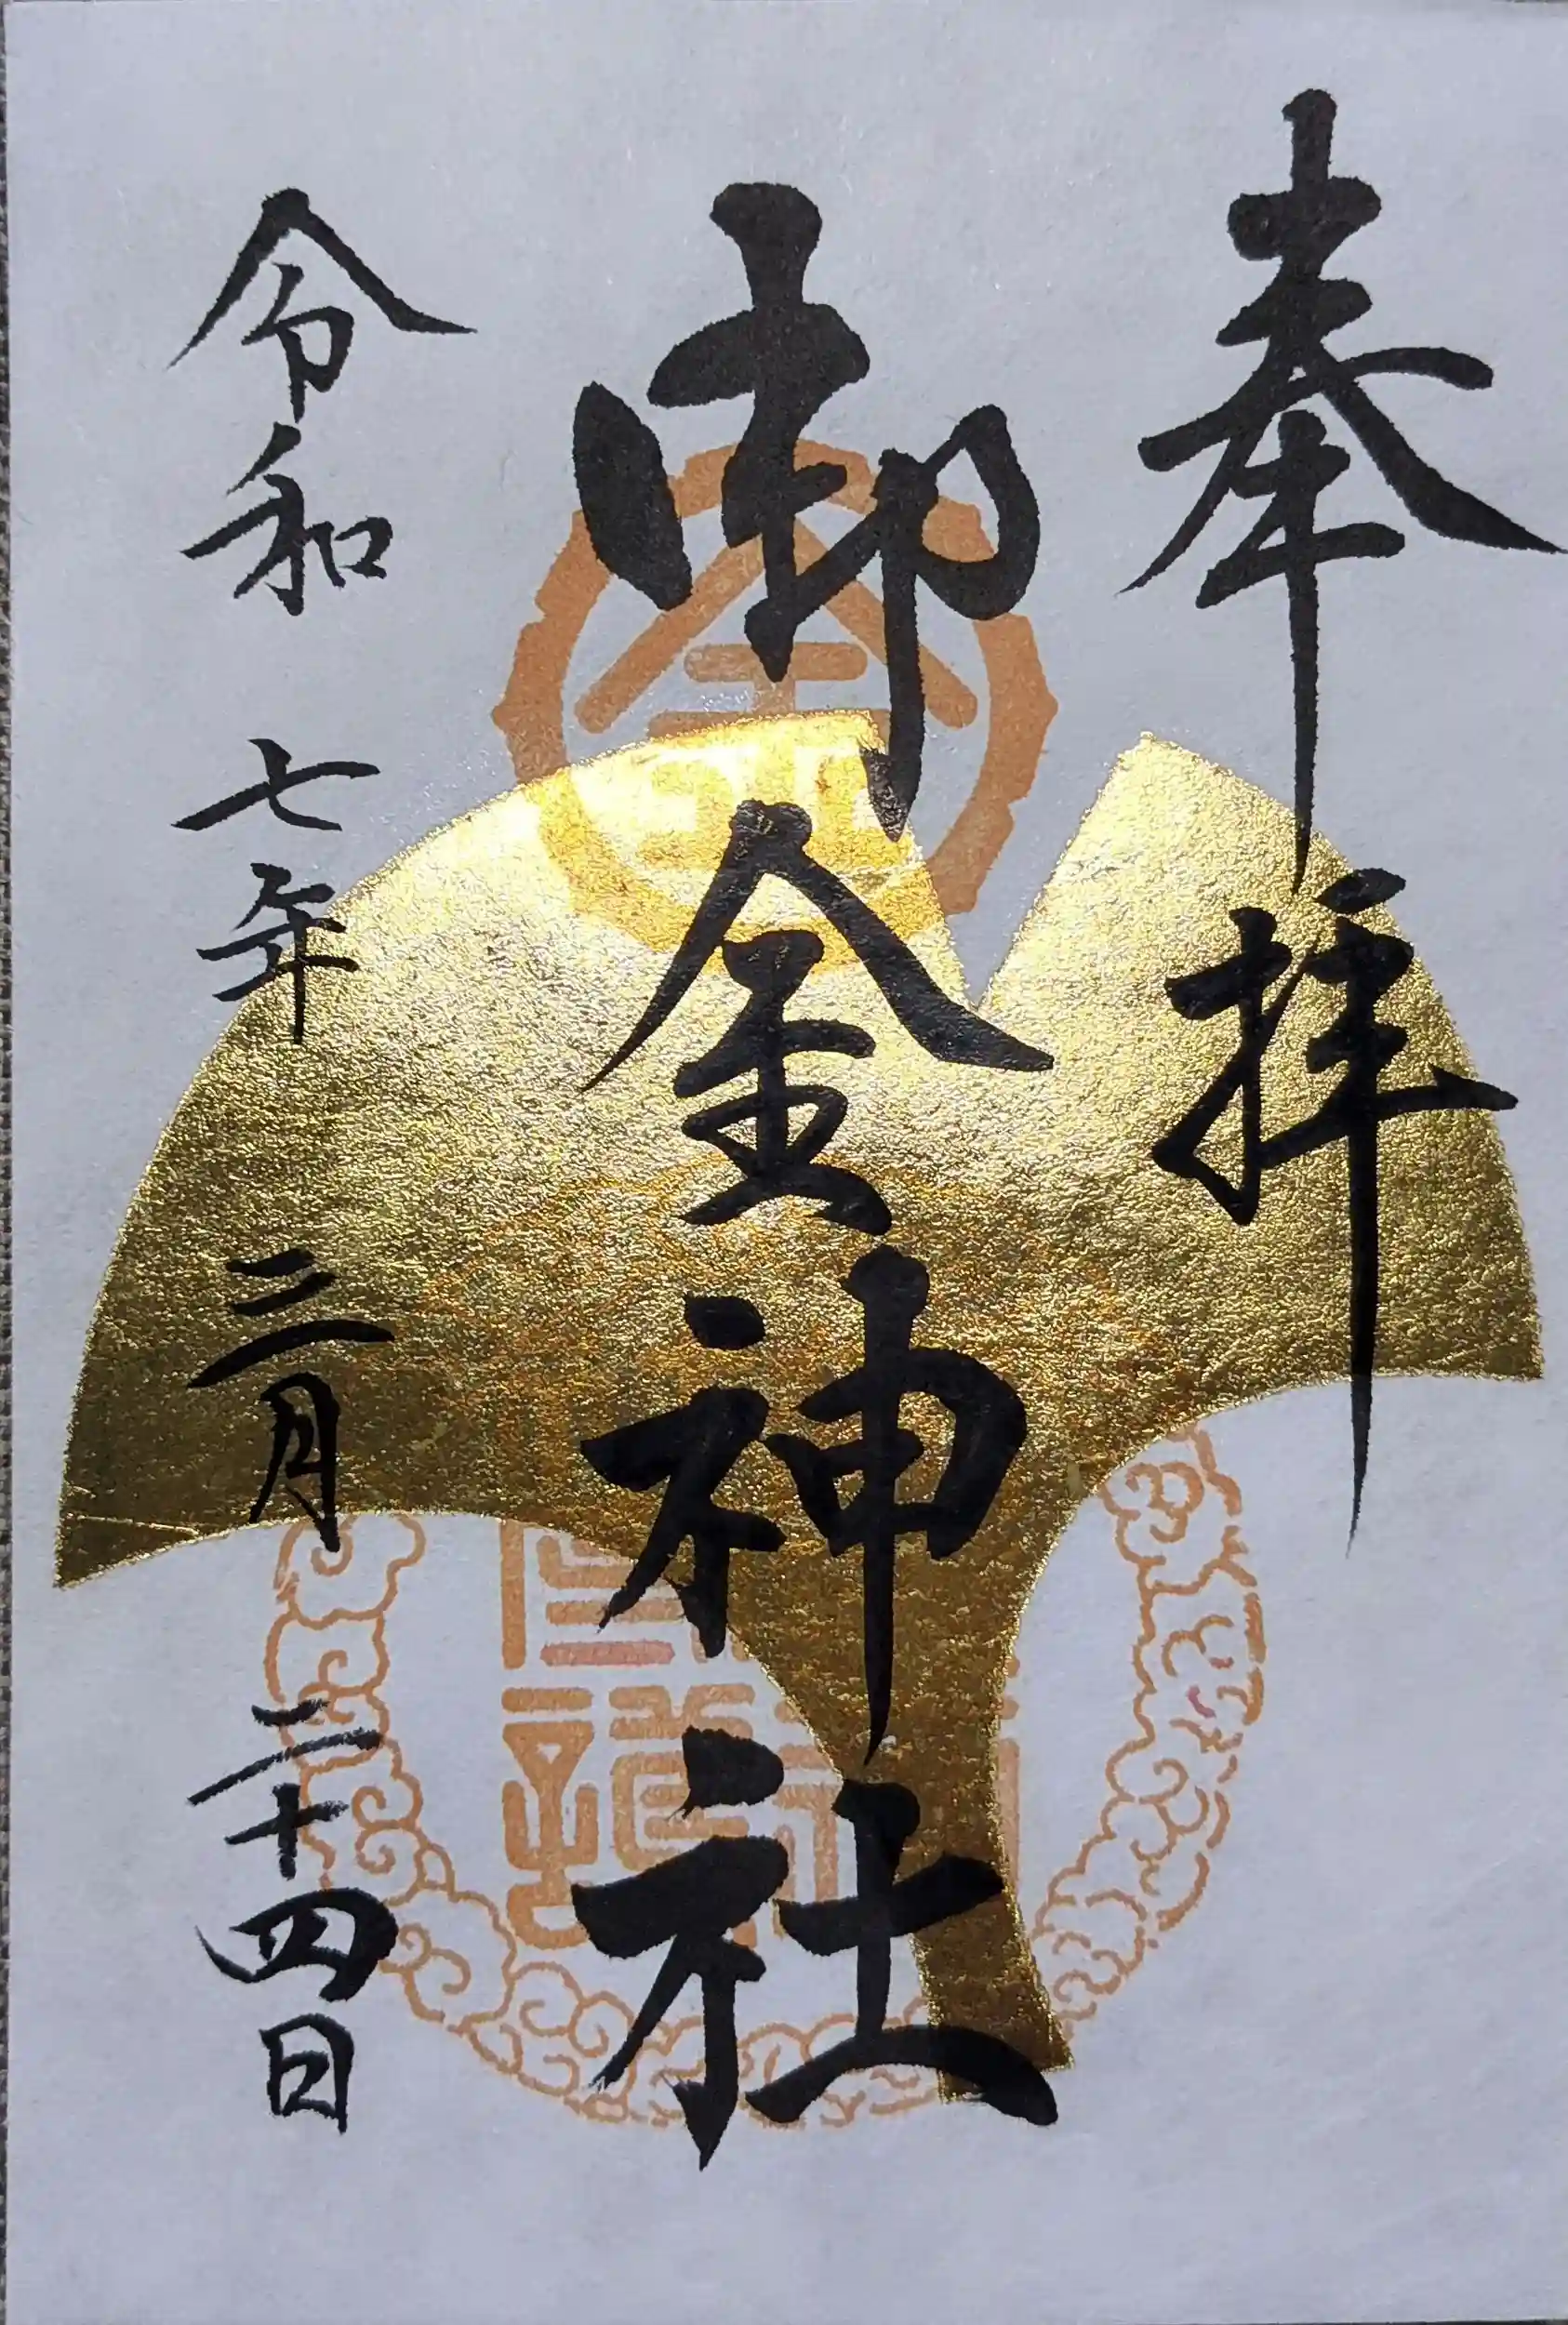 奉拝
御金神社
令和七年三月二十四日